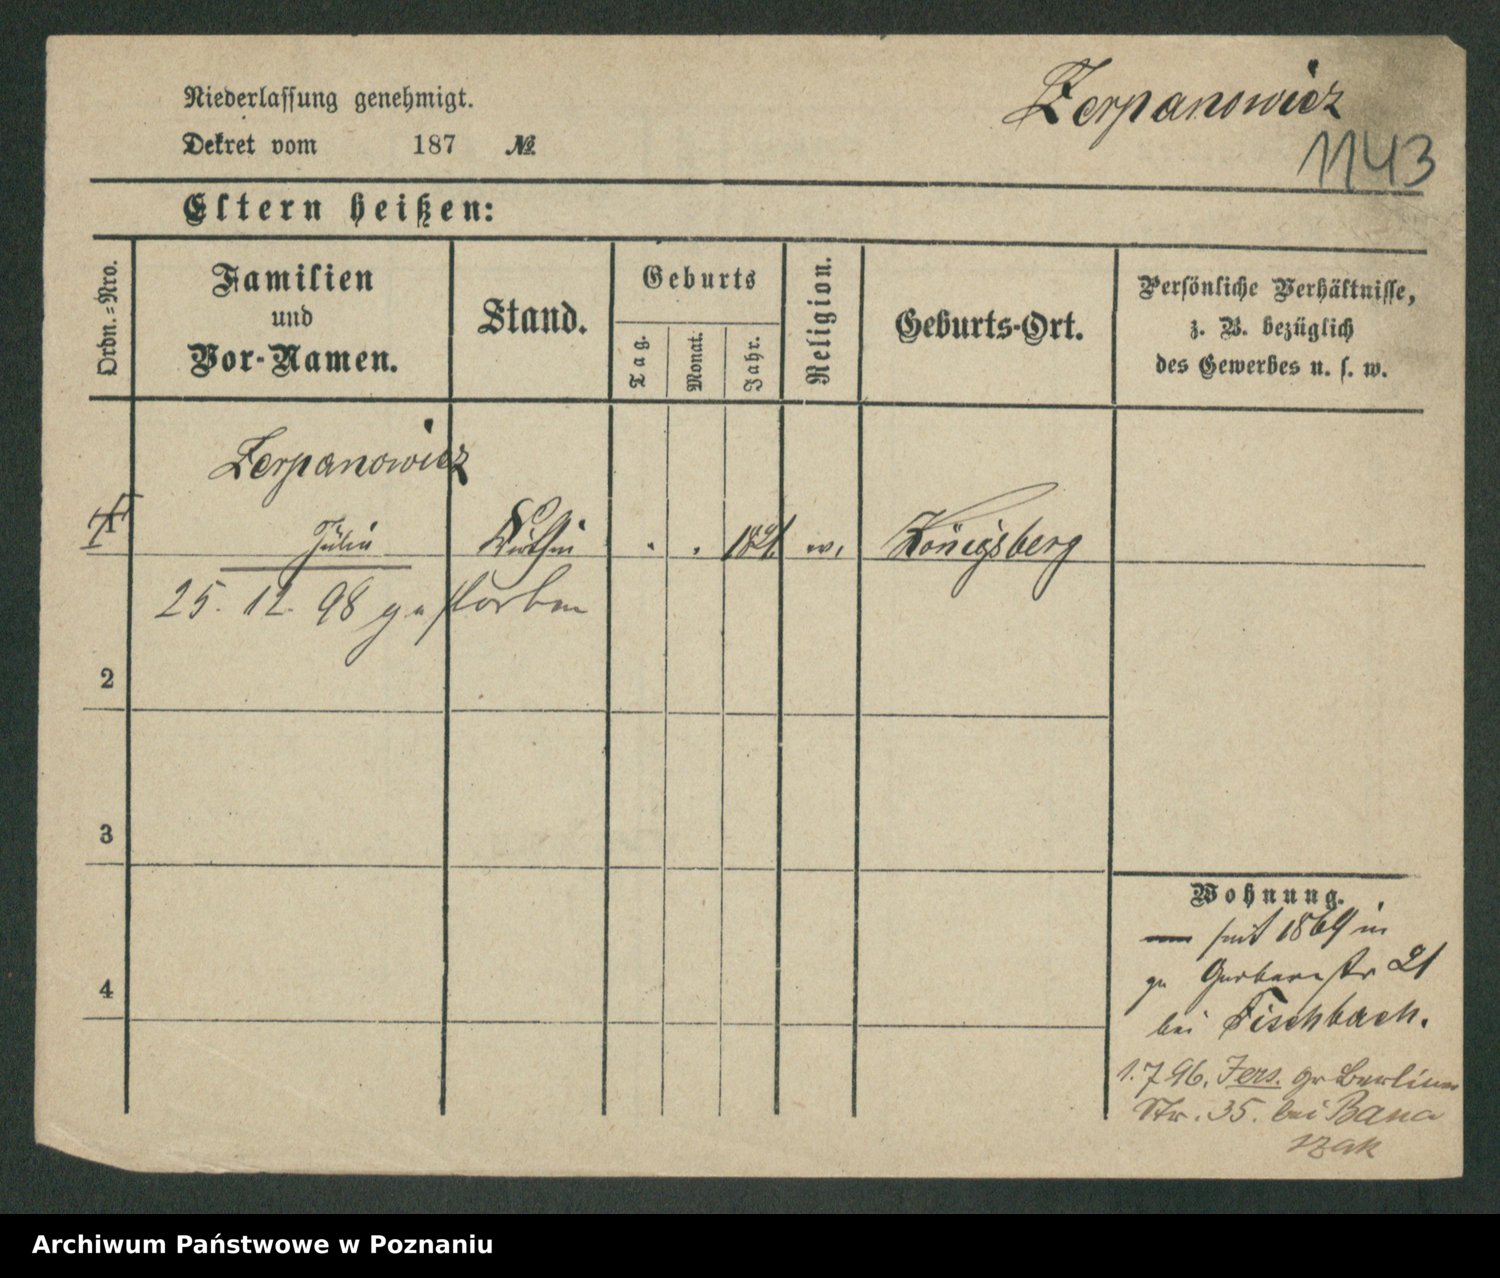 Niederlassung genehmigt.
Dekret vom 187 №
Zerpanowicz
1143
Eltern heißen:
Ordn.-Nro.
Familien
und
Vor-Namen.
Stand.
Geburts
Tag.
Monat.
Jahr.
Religion.
Geburts-Ort.
Persönliche Verhältnisse,
z. B. bezüglich
des Gewerbes u. s. w.
Zerpanowicz
1 Julie . . 1821 Königsberg
25. 12. 98 gestorben
2
3
4
Wohnung.
— seit 1869 in
gr Gerberstr 21
bei Fischbach.
1. 7 96. Jers. gr Berliner
Str. 35. bei Bana
szak
Archiwum Państwowe w Poznaniu